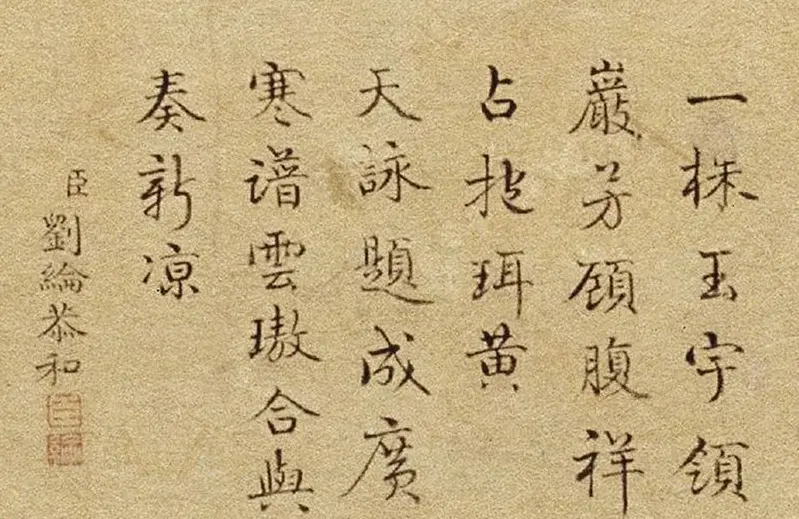 一株玉宇領
巖芳頋腹祥
占抱珥黃
天詠題成廣
寒譜雲璈合與
奏新涼
臣劉綸恭和